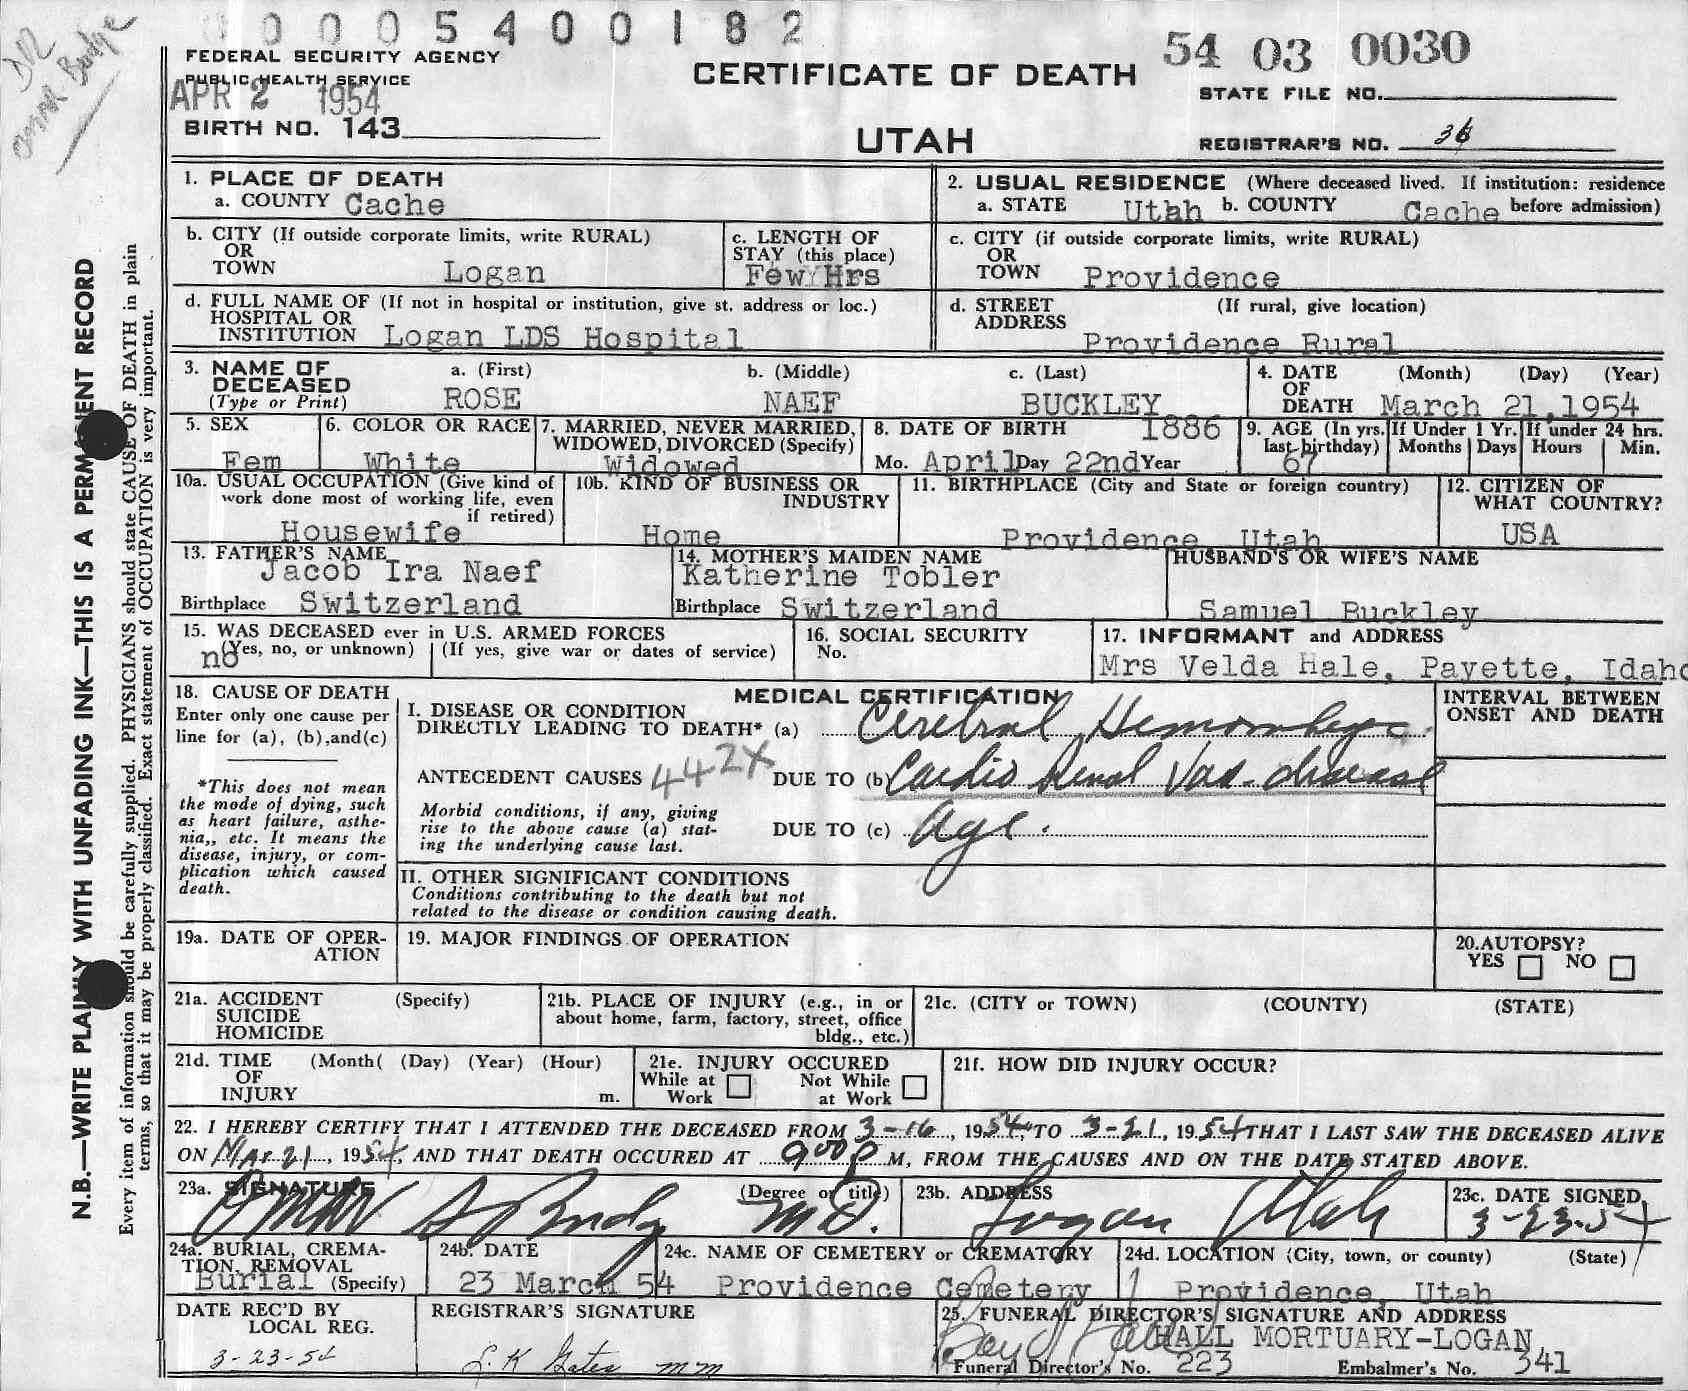 DR
OMAR Budge
0 0 0 0 5 4 0 0 1 8 2
54 03 0030
FEDERAL SECURITY AGENCY
PUBLIC HEALTH SERVICE
APR 2 1954
BIRTH NO. 143
CERTIFICATE OF DEATH
UTAH
STATE FILE NO.
REGISTRAR'S NO. 36
N.B.—WRITE PLAINLY WITH UNFADING INK—THIS IS A PERMANENT RECORD
Every item of information should be carefully supplied. PHYSICIANS should state CAUSE OF DEATH in plain
terms, so that it may be properly classified. Exact statement of OCCUPATION is very important.
1. PLACE OF DEATH
a. COUNTY Cache
2. USUAL RESIDENCE (Where deceased lived. If institution: residence
a. STATE Utah b. COUNTY Cache before admission)
b. CITY (If outside corporate limits, write RURAL)
OR
TOWN Logan
c. LENGTH OF
STAY (this place)
Few Hrs
c. CITY (if outside corporate limits, write RURAL)
OR
TOWN Providence
d. FULL NAME OF (If not in hospital or institution, give st. address or loc.)
HOSPITAL OR
INSTITUTION Logan LDS Hospital
d. STREET (If rural, give location)
ADDRESS
Providence Rural
3. NAME OF
DECEASED
(Type or Print)
a. (First)
ROSE
b. (Middle)
NAEF
c. (Last)
BUCKLEY
4. DATE (Month) (Day) (Year)
OF
DEATH March 21,1954
5. SEX
Fem
6. COLOR OR RACE
White
7. MARRIED, NEVER MARRIED,
WIDOWED, DIVORCED (Specify)
Widowed
8. DATE OF BIRTH 1886
Mo. April Day 22nd Year
9. AGE (In yrs.
last birthday)
67
If Under 1 Yr.
Months Days
If under 24 hrs.
Hours Min.
10a. USUAL OCCUPATION (Give kind of
work done most of working life, even
if retired)
Housewife
10b. KIND OF BUSINESS OR
INDUSTRY
Home
11. BIRTHPLACE (City and State or foreign country)
Providence Utah
12. CITIZEN OF
WHAT COUNTRY?
USA
13. FATHER'S NAME
Jacob Ira Naef
Birthplace Switzerland
14. MOTHER'S MAIDEN NAME
Katherine Tobler
Birthplace Switzerland
HUSBAND'S OR WIFE'S NAME
Samuel Buckley
15. WAS DECEASED ever in U.S. ARMED FORCES
(Yes, no, or unknown) (If yes, give war or dates of service)
no
16. SOCIAL SECURITY
No.
17. INFORMANT and ADDRESS
Mrs Velda Hale, Payette, Idaho
18. CAUSE OF DEATH
Enter only one cause per
line for (a), (b), and (c)
*This does not mean
the mode of dying, such
as heart failure, asthe-
nia,, etc. It means the
disease, injury, or com-
plication which caused
death.
MEDICAL CERTIFICATION
I. DISEASE OR CONDITION
DIRECTLY LEADING TO DEATH* (a) Cerebral Hemorrhage
ANTECEDENT CAUSES 442X DUE TO (b) Cardio Renal Vas. disease
Morbid conditions, if any, giving
rise to the above cause (a) stat-
ing the underlying cause last.
DUE TO (c) Age.
INTERVAL BETWEEN
ONSET AND DEATH
II. OTHER SIGNIFICANT CONDITIONS
Conditions contributing to the death but not
related to the disease or condition causing death.
19a. DATE OF OPER-
ATION
19. MAJOR FINDINGS OF OPERATION
20. AUTOPSY?
YES NO
21a. ACCIDENT (Specify)
SUICIDE
HOMICIDE
21b. PLACE OF INJURY (e.g., in or
about home, farm, factory, street, office
bldg., etc.)
21c. (CITY or TOWN) (COUNTY) (STATE)
21d. TIME (Month( (Day) (Year) (Hour)
OF
INJURY m.
21e. INJURY OCCURED
While at Not While
Work at Work
21f. HOW DID INJURY OCCUR?
22. I HEREBY CERTIFY THAT I ATTENDED THE DECEASED FROM 3-16, 1954, TO 3-21, 1954 THAT I LAST SAW THE DECEASED ALIVE
ON Mar 21, 1954, AND THAT DEATH OCCURED AT 9:00 P M, FROM THE CAUSES AND ON THE DATE STATED ABOVE.
23a. SIGNATURE (Degree or title)
Omar S Budge M.D.
23b. ADDRESS
Logan Utah
23c. DATE SIGNED
3-23-54
24a. BURIAL, CREMA-
TION. REMOVAL
Burial (Specify)
24b. DATE
23 March 54
24c. NAME OF CEMETERY or CREMATORY
Providence Cemetery
24d. LOCATION (City, town, or county) (State)
Providence, Utah
DATE REC'D BY
LOCAL REG.
3-23-54
REGISTRAR'S SIGNATURE
L.K Gates mm
25. FUNERAL DIRECTOR'S SIGNATURE AND ADDRESS
Boyd Hall
HALL MORTUARY-LOGAN
Funeral Director's No. 223 Embalmer's No. 341